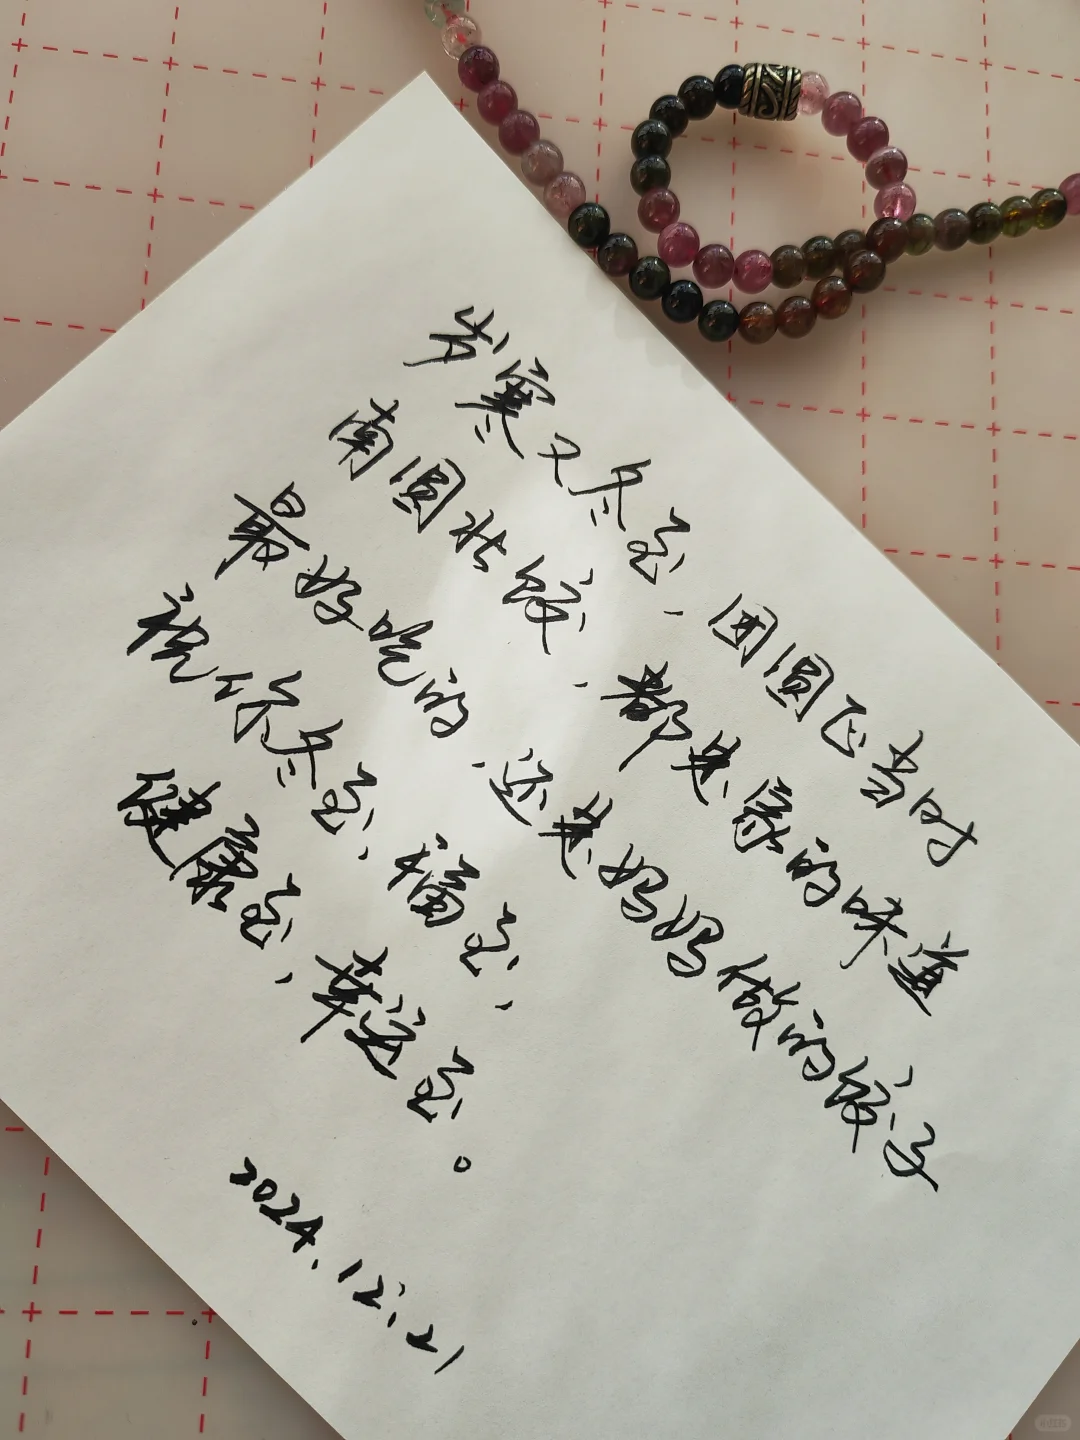 岁寒又冬至，团圆正当时
南圆北饺，都是家的味道
最好吃的，还是妈妈做的饺子
祝你冬至，福至，
健康至，幸运至。
2024.12.21
小红书